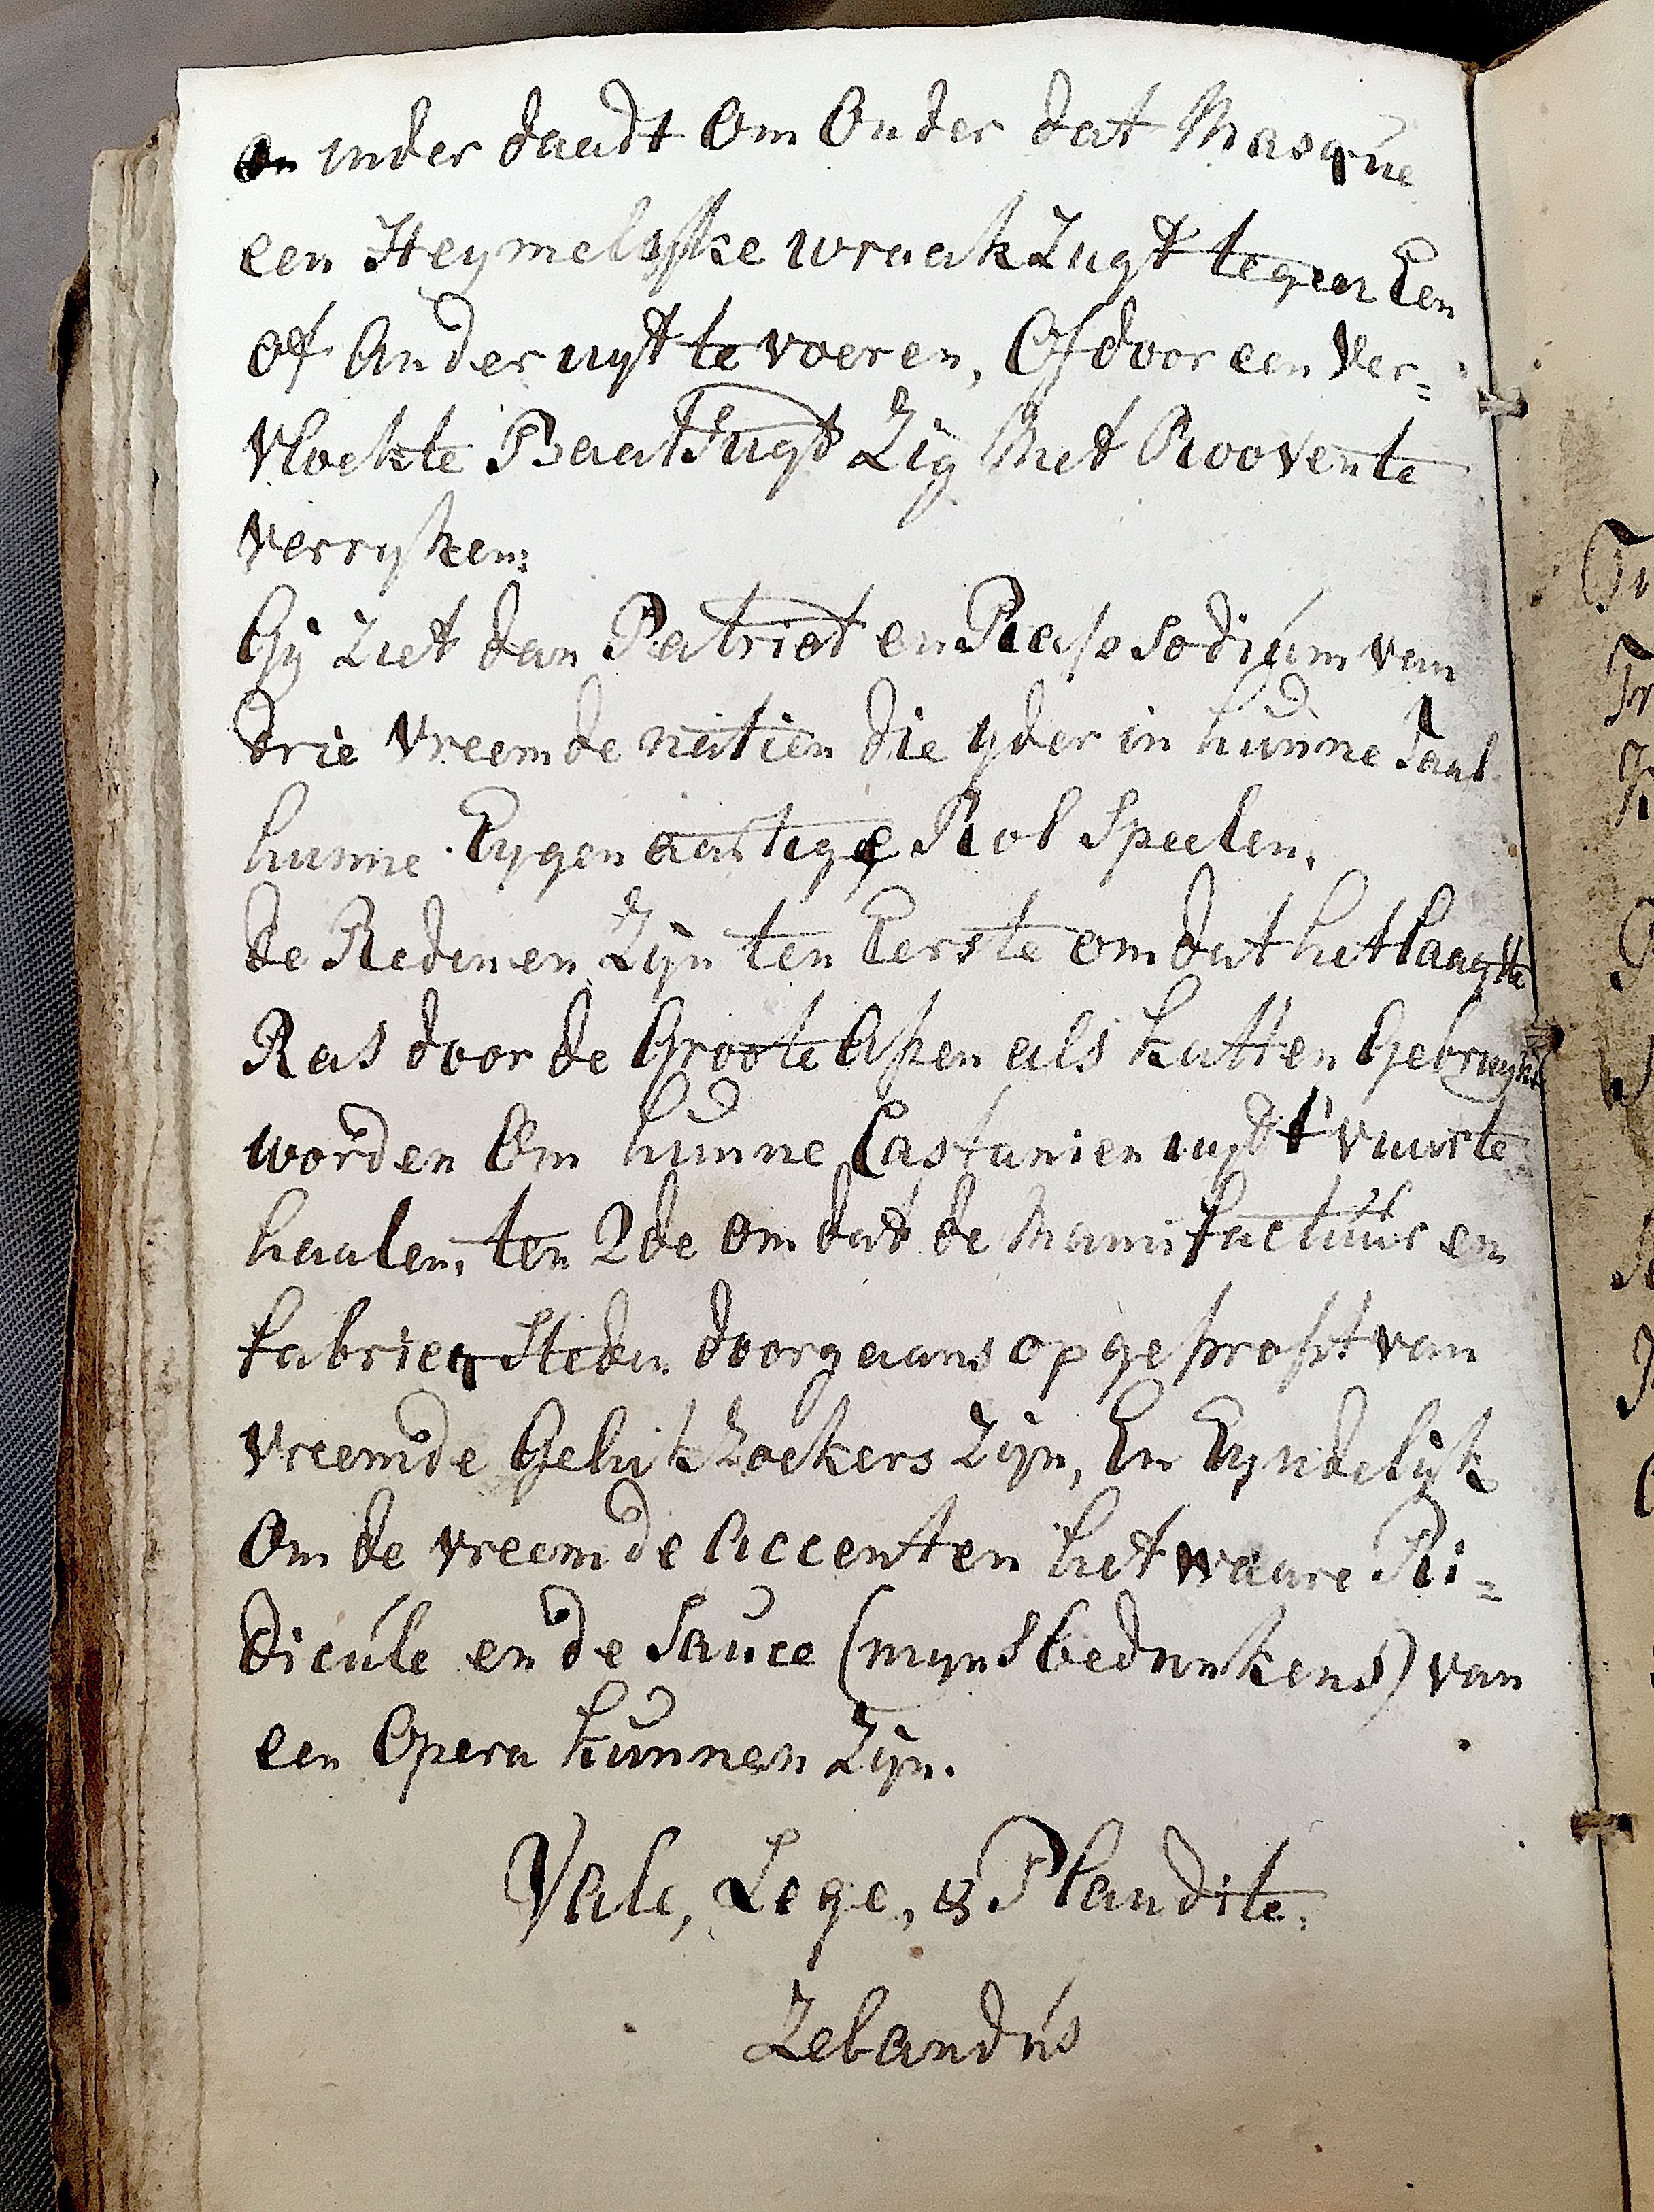 en inder daadt Om Onder dat Masque
een Heymelyke wraak Zugt tegen Een
of Ander uyt te voeren, Of door een Ver=
vloekte Baat Zugt Zig Met Rooven te
verryken:
Gÿ Ziet dan Patriot en Rapsodium van
drie Vreemde natien die yder in hunne Taal
hunne Eygen aartige Rol Speelen.
de Redenen Zÿn ten Eerste om dat het laagste
Ras door de Groote Apen als katten Gebruykt
worden Om hunne Castanien uyt 't vuur te
haalen, ten 2de om dat de Manufactuur en
fabrieq Steden doorgaans opgepropt van
vreemde Geluk Zoekers Zÿn, En Eyndelÿk
Om de vreemde Accenten het waare Ri=
dicule en de Sauce (myns bedunkens) van
een Opera kunnen Zÿn.
Vale, Lege, & Plaudite.
Zelandús